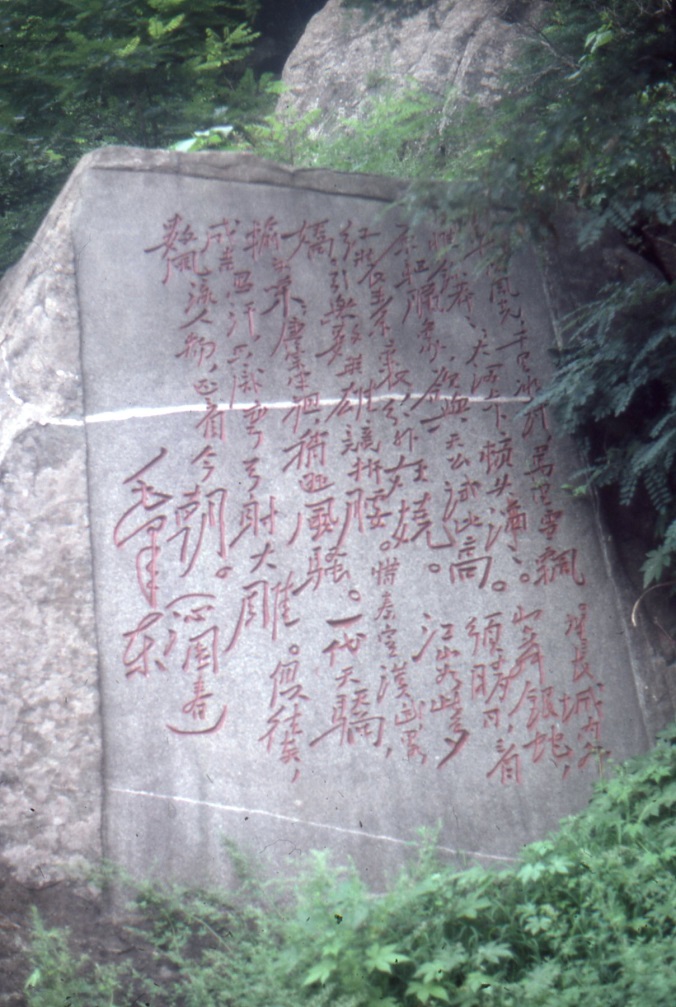 国風光,千里冰封,萬里雪飄。望長城内外,
惟餘莽莽;大河上下,頓失滔滔。山舞銀蛇,
原馳臘象,欲與天公試比高。須晴日,看
红装素裹,分外妖嬈。江山如此多
嬌,引無數英雄競折腰。惜秦皇漢武,略
輸文采;唐宗宋祖,稍遜風騷。一代天驕,
成吉思汗,只識彎弓射大雕。俱往矣,
數風流人物,还看今朝。(沁園春)
毛泽东